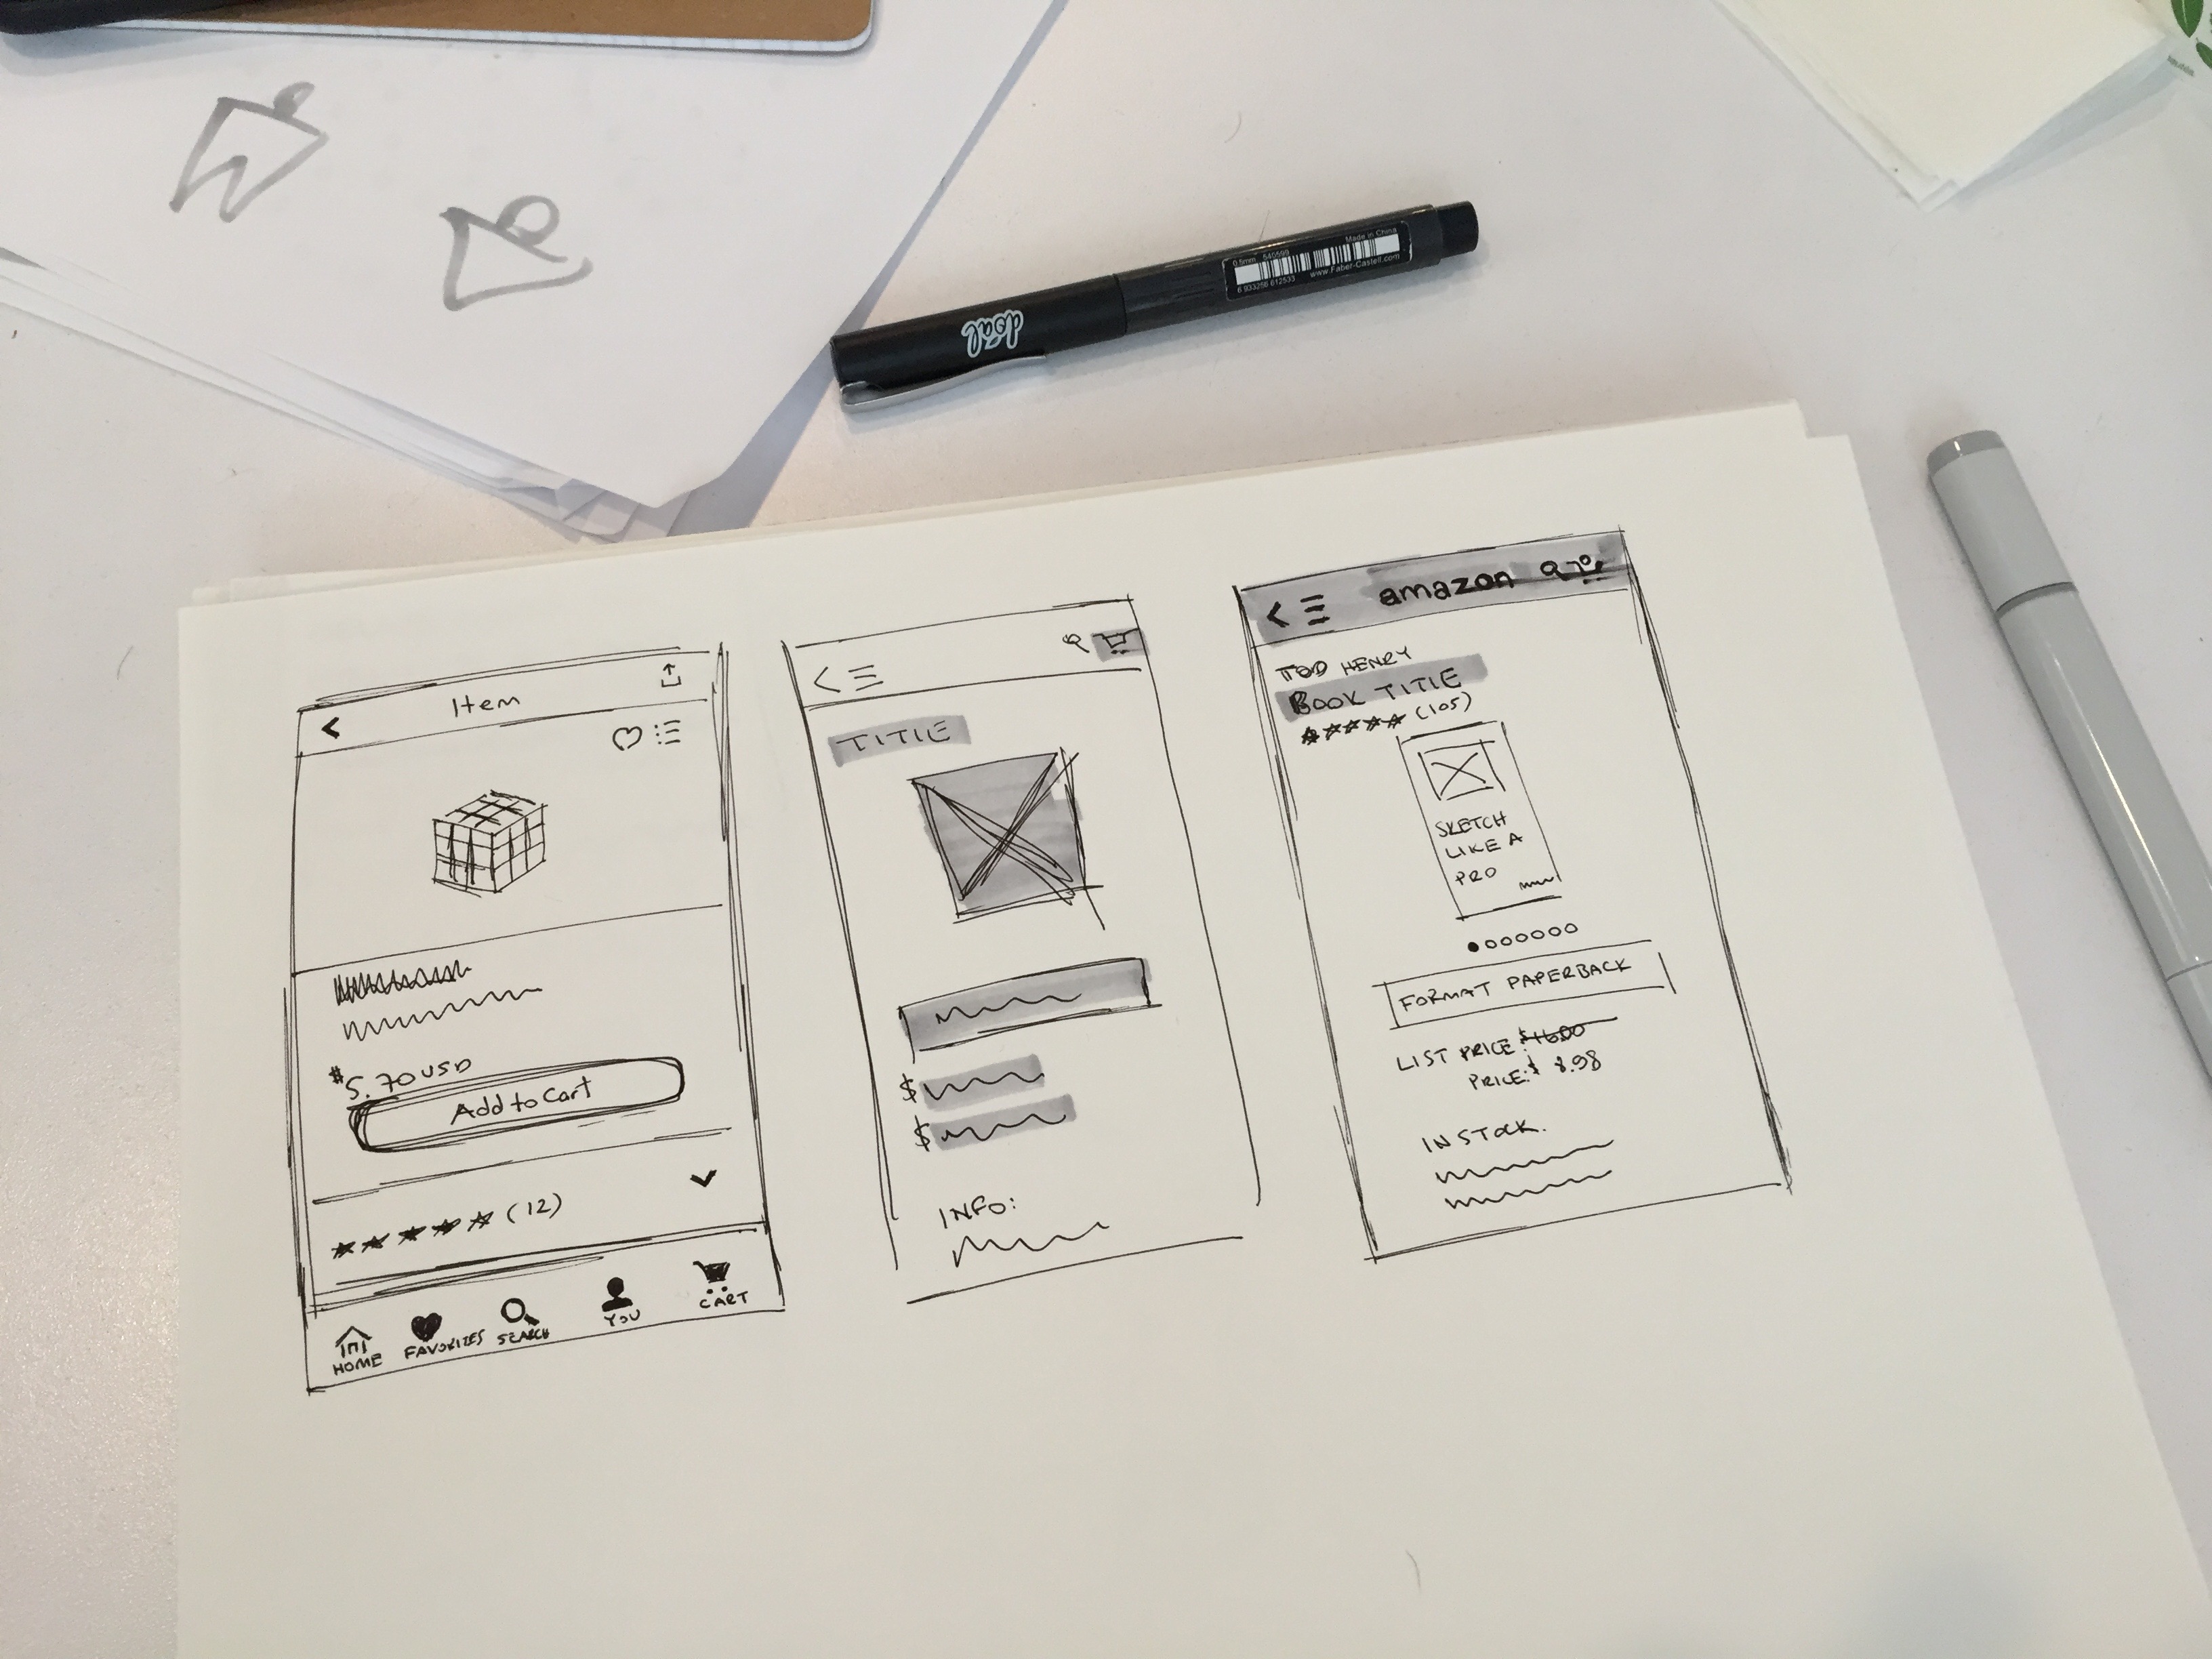 deal
0.5mm 540599 Made in China
6 933256 612533 www.Faber-Castell.com
Item
$5.70 USD
Add to Cart
(12)
HOME
FAVORITES
SEARCH
YOU
CART
TITLE
$
$
INFO:
amazon
TOD HENRY
BOOK TITLE
(105)
SKETCH
LIKE A
PRO
FORMAT PAPERBACK
LIST PRICE: $16.00
PRICE: $ 8.98
IN STOCK.